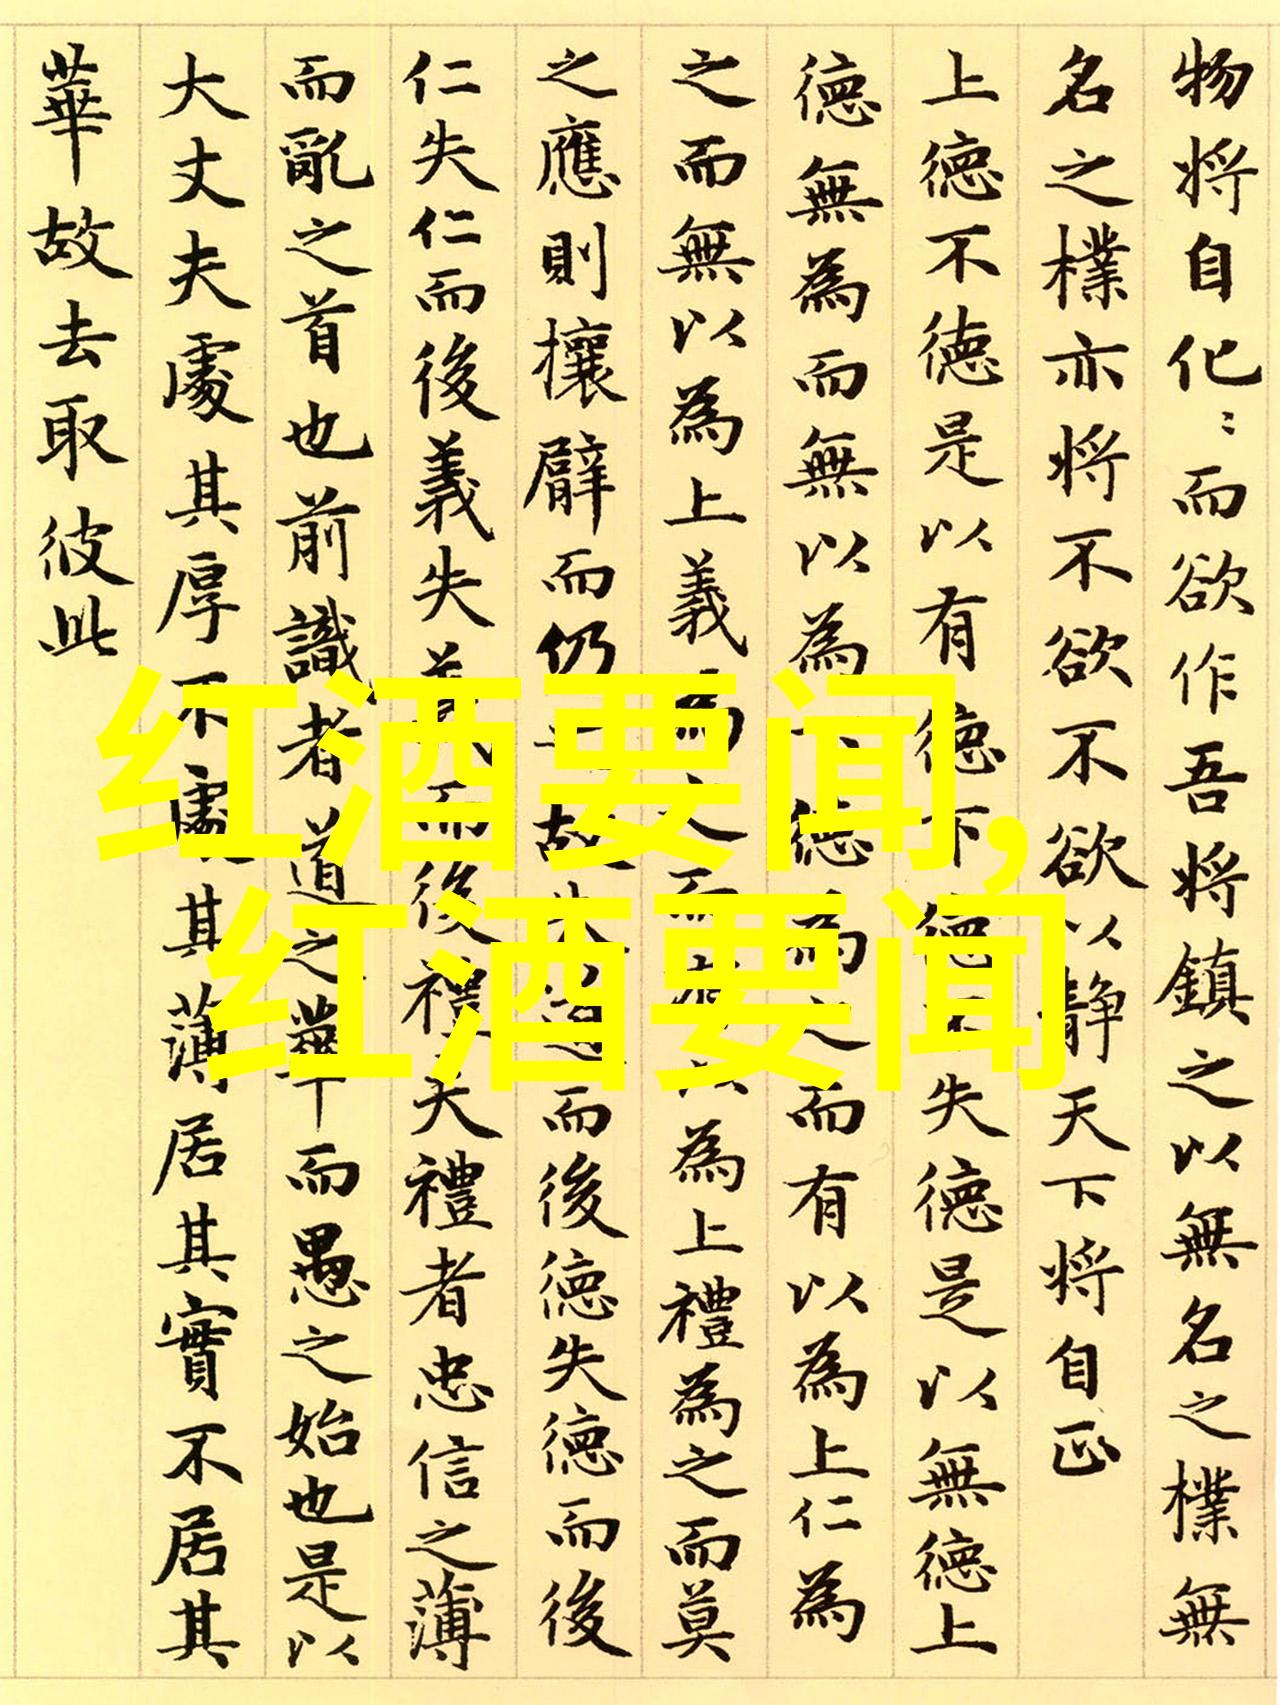 物将自化〻而欲作吾将鎮之以無名之樸無
名之樸亦将不欲不欲以静天下将自正
上德不德是以有德下德不失德是以無德上
德無為而無以為德為之而有以為上仁為
之而無以為上義為之而以為上禮為之而莫
之應則攘臂而仍故失道而後德失德而後
仁失仁而後義失義而後禮夫禮者忠信之薄
而亂之首也前識者道之華而愚之始也是以
大丈夫處其厚不處其薄居其實不居其
華故去取彼此
红酒要闻,
红酒要闻